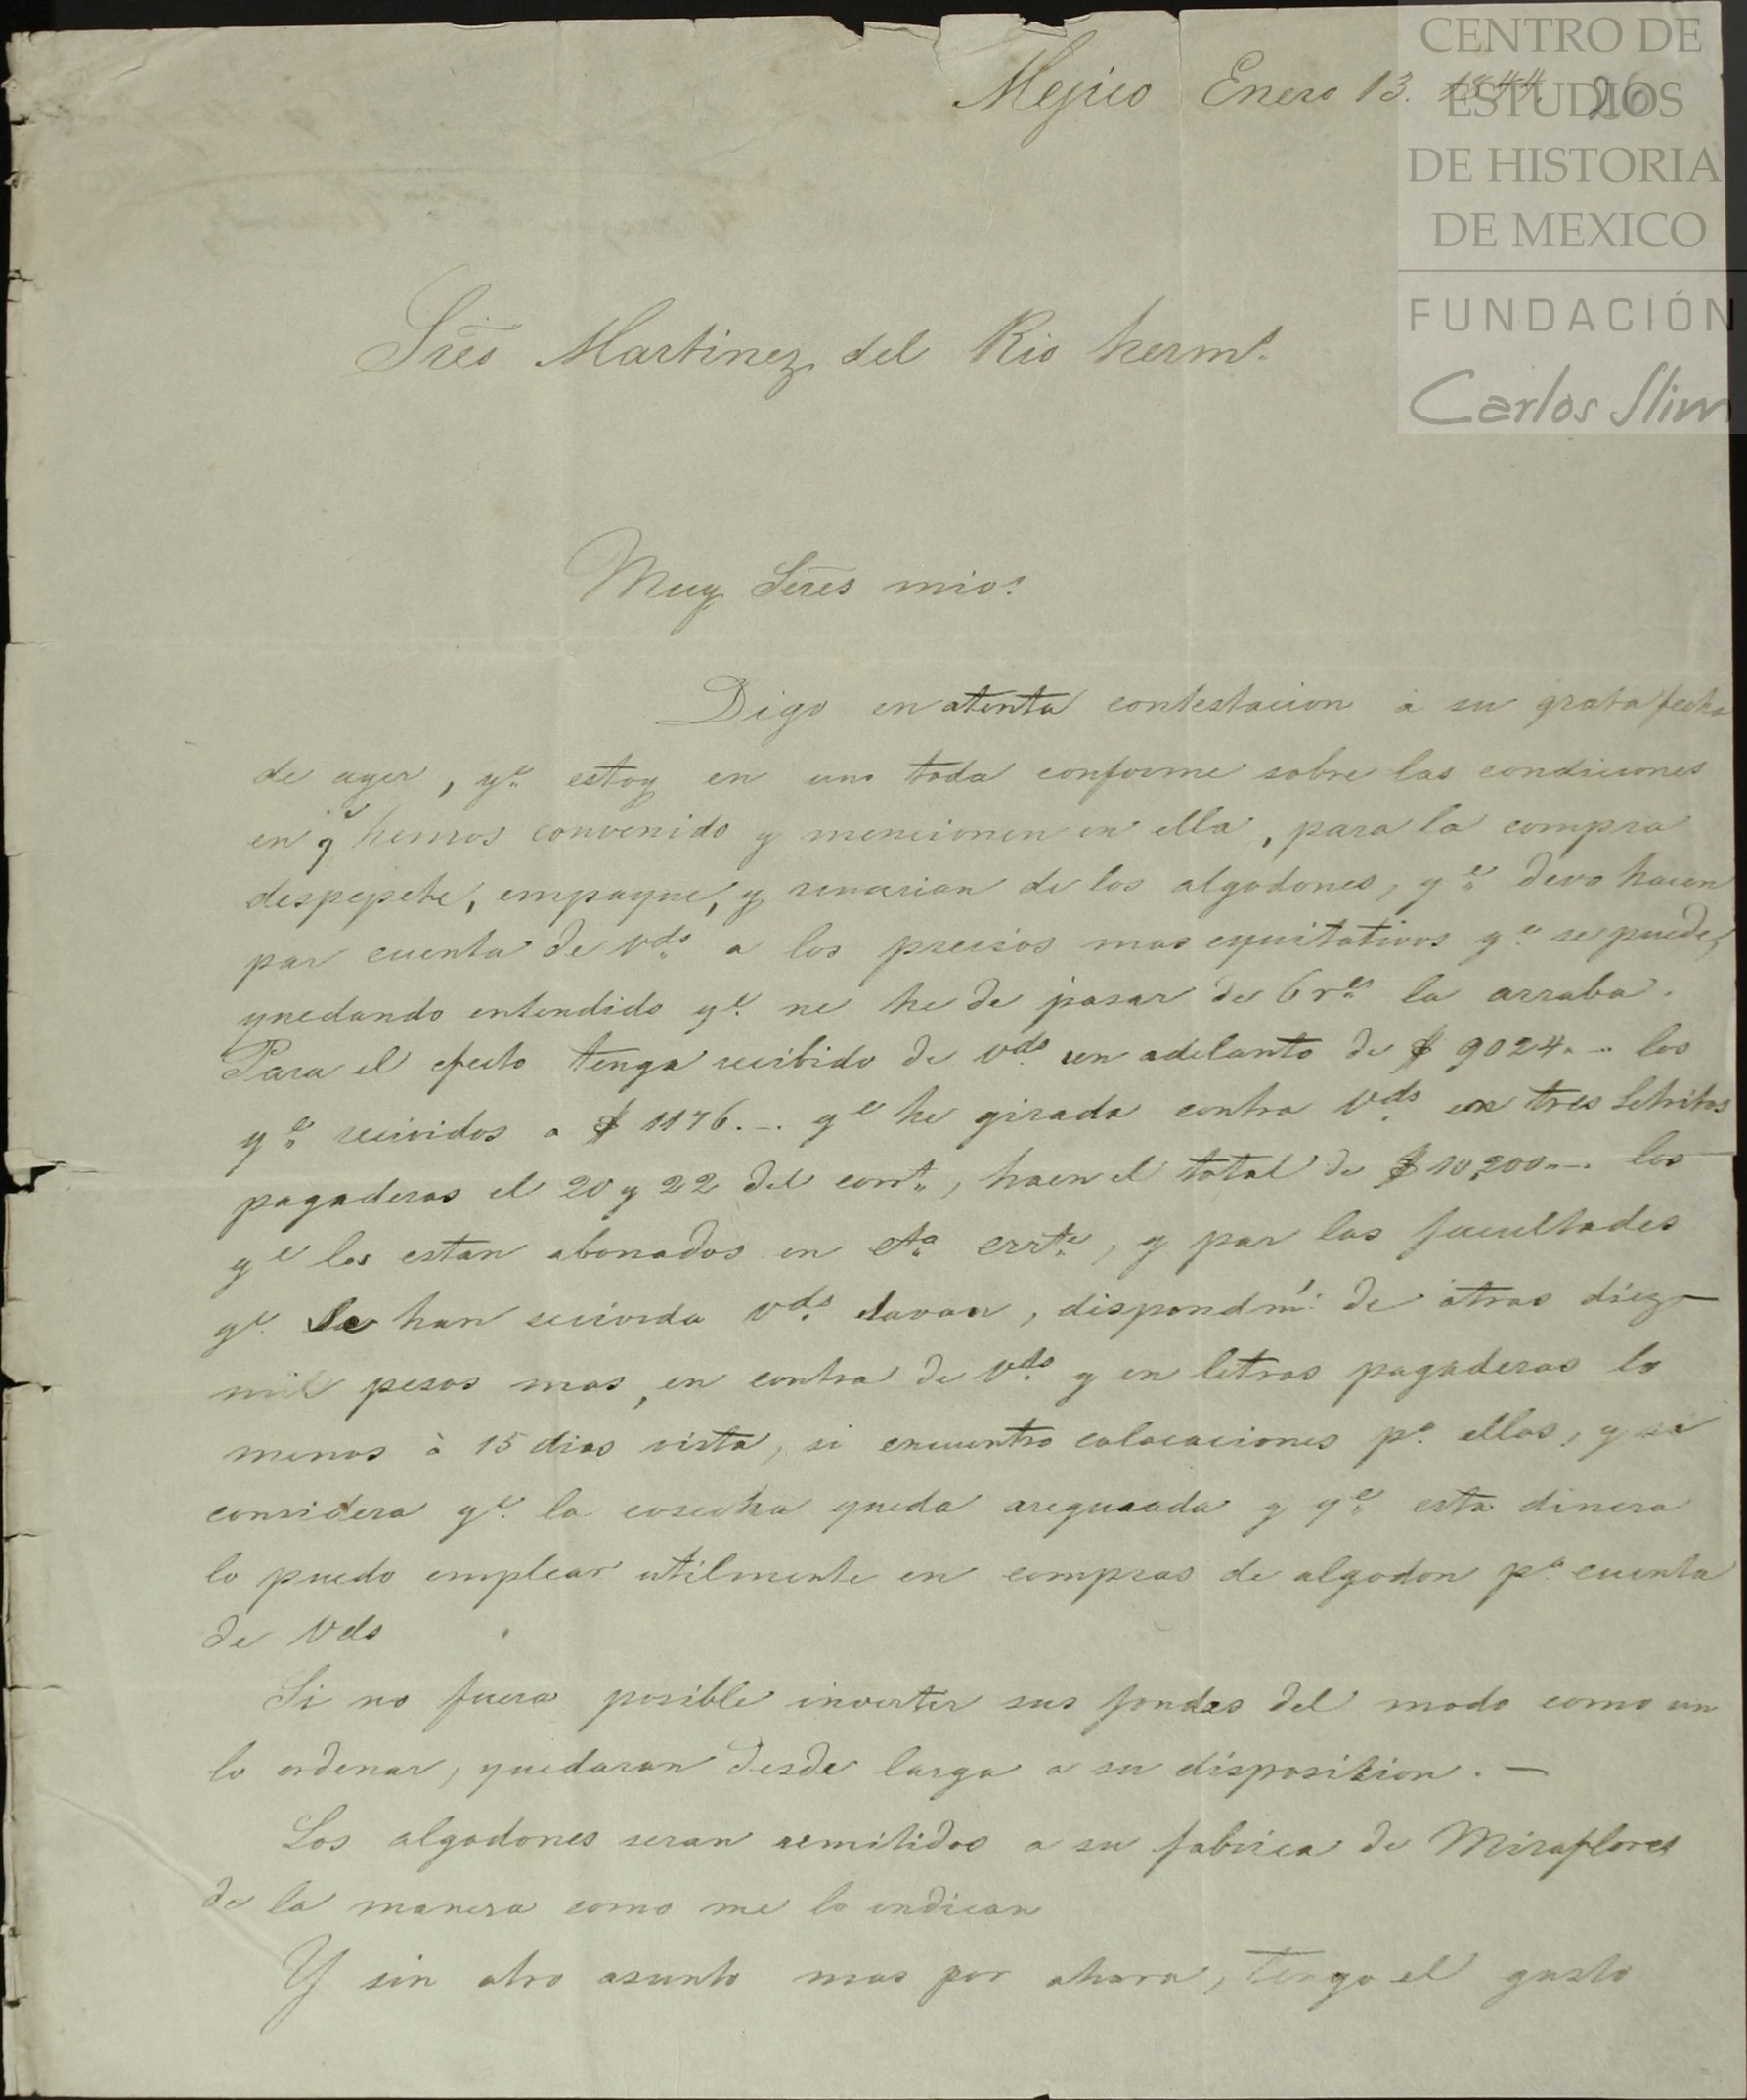 Mejico Enero 13. 1844. 26
CENTRO DE
ESTUDIOS
DE HISTORIA
DE MEXICO
FUNDACIÓN
Carlos Slim
Sres Martinez del Rio herms.
Muy Seres mios.
Digo en atenta contestacion à su grata fecha
de ayer, qe. estoy en uno todo conforme sobre las condiciones
en qe hemos convenido y mencionen en ella, para la compra
despepete, empaque, y de los algodones, qe. devo hacer
par cuenta de Vds. a los precios mas equitativos qe. se puede,
quedando entendido qe. ne he de pasar de 6 rs. la arraba.
Para el efecto tenga recibido de Vds. un adelanto de $ 9024.- los
qe. recividos a $ 1176.-. qe he girada contra Vds. en tres letritas
pagaderas el 20 y 22 del corrte., hacen el total de $ 10,200.-. los
qe les estan abonados en cta. crrte., y par las facultades
qe. han Vds. de otras diez
mil pesos mas, en contra de Vds. y en letras pagaderas lo
menos à 15 dias vista, si encuentro colocaciones pa. ellas, y se
considera qe. la cosecha queda asegurada y qe. esta dinera
lo puedo emplear utilmente en compras de algodon pa. cuenta
de Vds
Si no fuera posible invertir sus fondos del modo como un
lo ordenar, quedaran desde largo a su disposition. —
Los algodones seran remitidos a su fabrica de Miraflores
de la manera como me lo indican
Y sin otro asunto mas por ahora, tengo el gusto